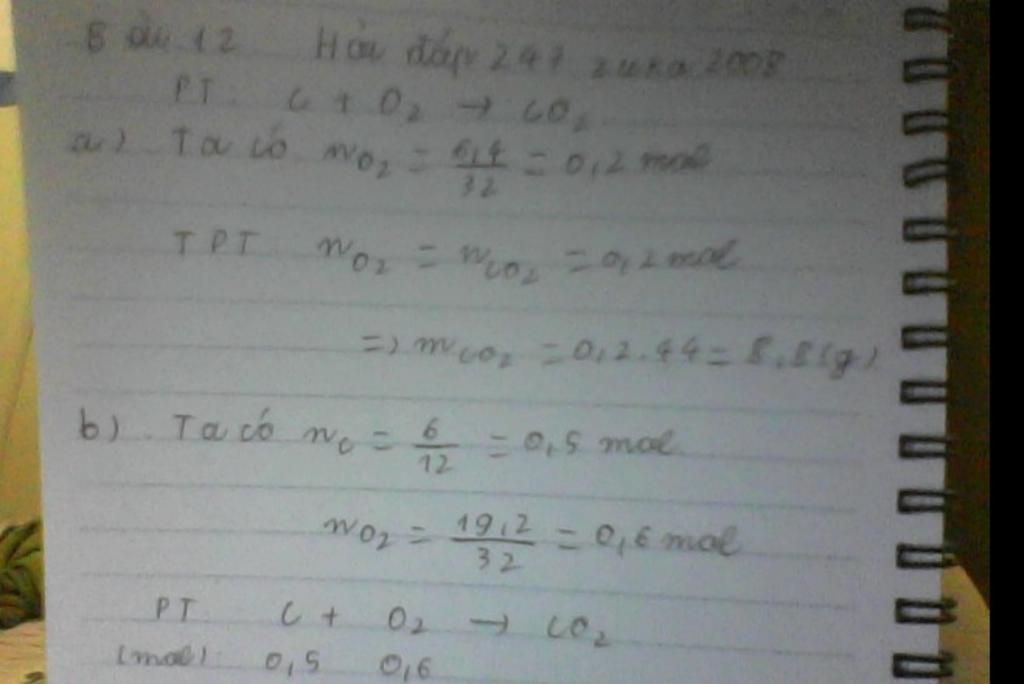 Bài 12 Hỏi đáp 247 zuka 2008
PT: C + O₂ → CO₂
a) Ta có nO₂ = 6,4/32 = 0,2 mol
TPT nO₂ = nCO₂ = 0,2 mol
=> mCO₂ = 0,2.44 = 8,8(g)
b) Ta có nC = 6/12 = 0,5 mol
nO₂ = 19,2/32 = 0,6 mol
PT C + O₂ → CO₂
(mol) 0,5 0,6